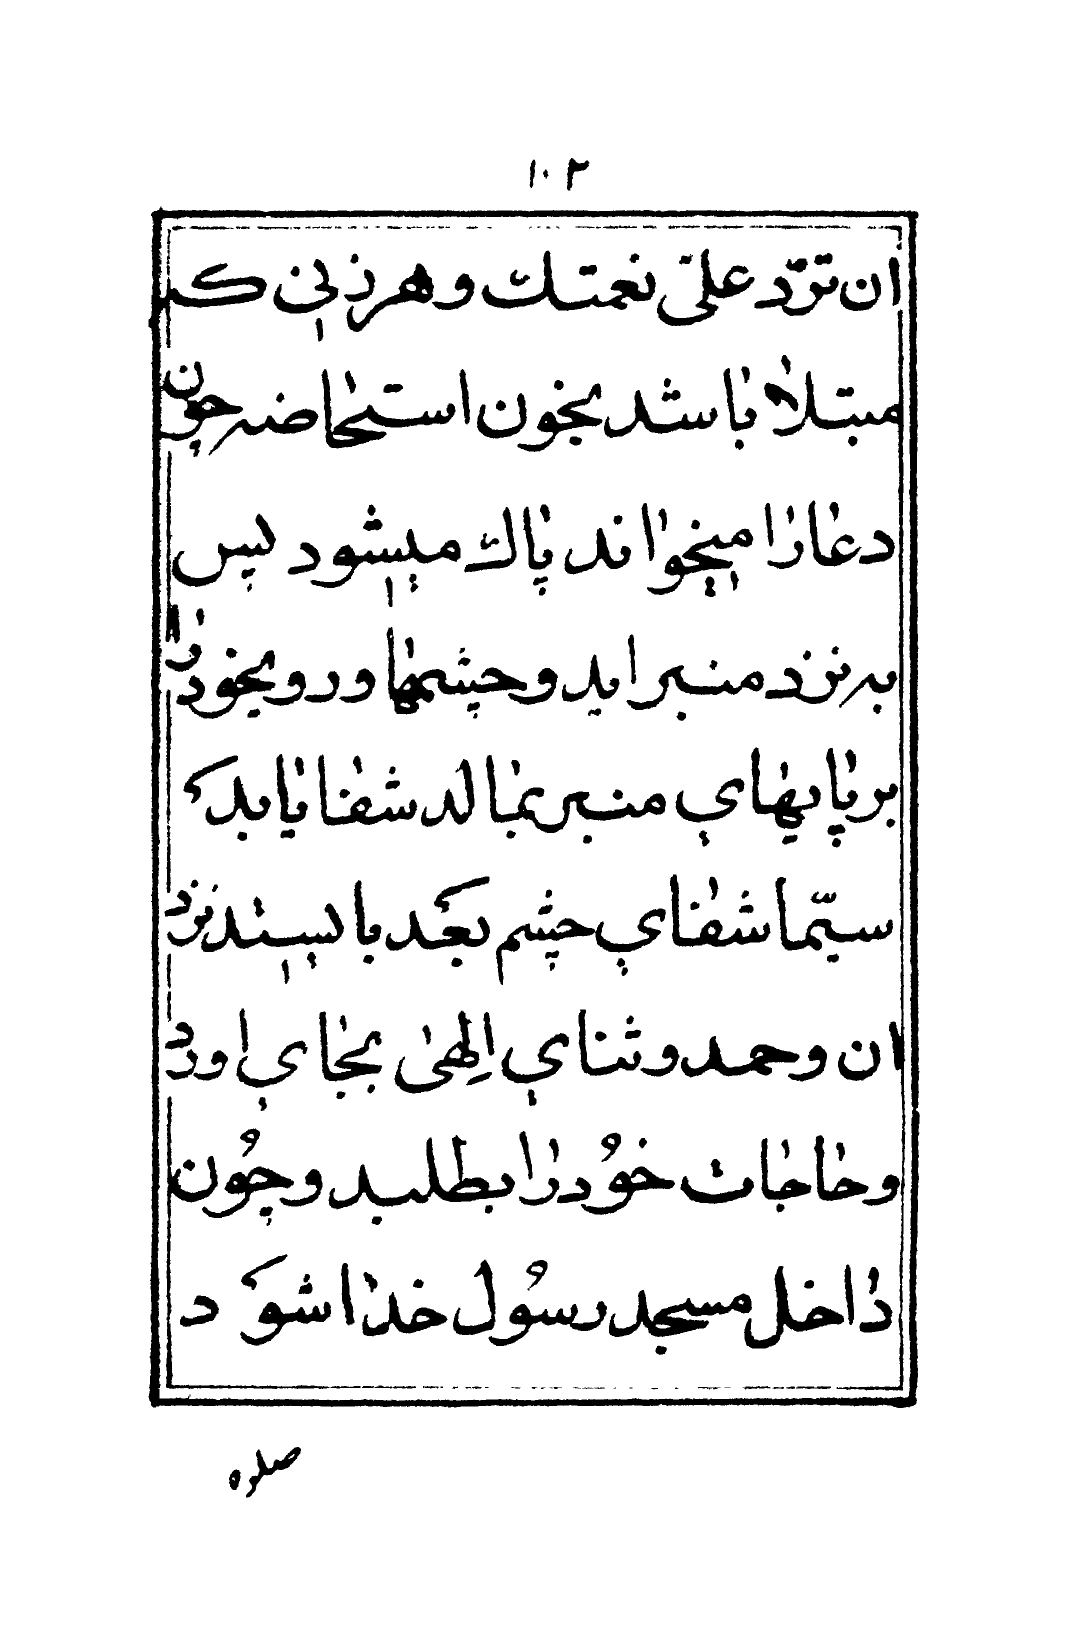 ۱۰۳
ان تردّ علیّ نعمتک و هر زنی که
مبتلا باشد بخون استحاضه چون
دعا را میخواند پاک میشود پس
به نزد منبر اید و چشمها و رو بخود را
بر پایهای منبر بمالد شفا یابد
سیّما شفای چشم بعد بایستد نزد
ان و حمد و ثنای الهی بجای اورد
و حاجات خود را بطلبد و چون
داخل مسجد رسول خدا شود
صلوه